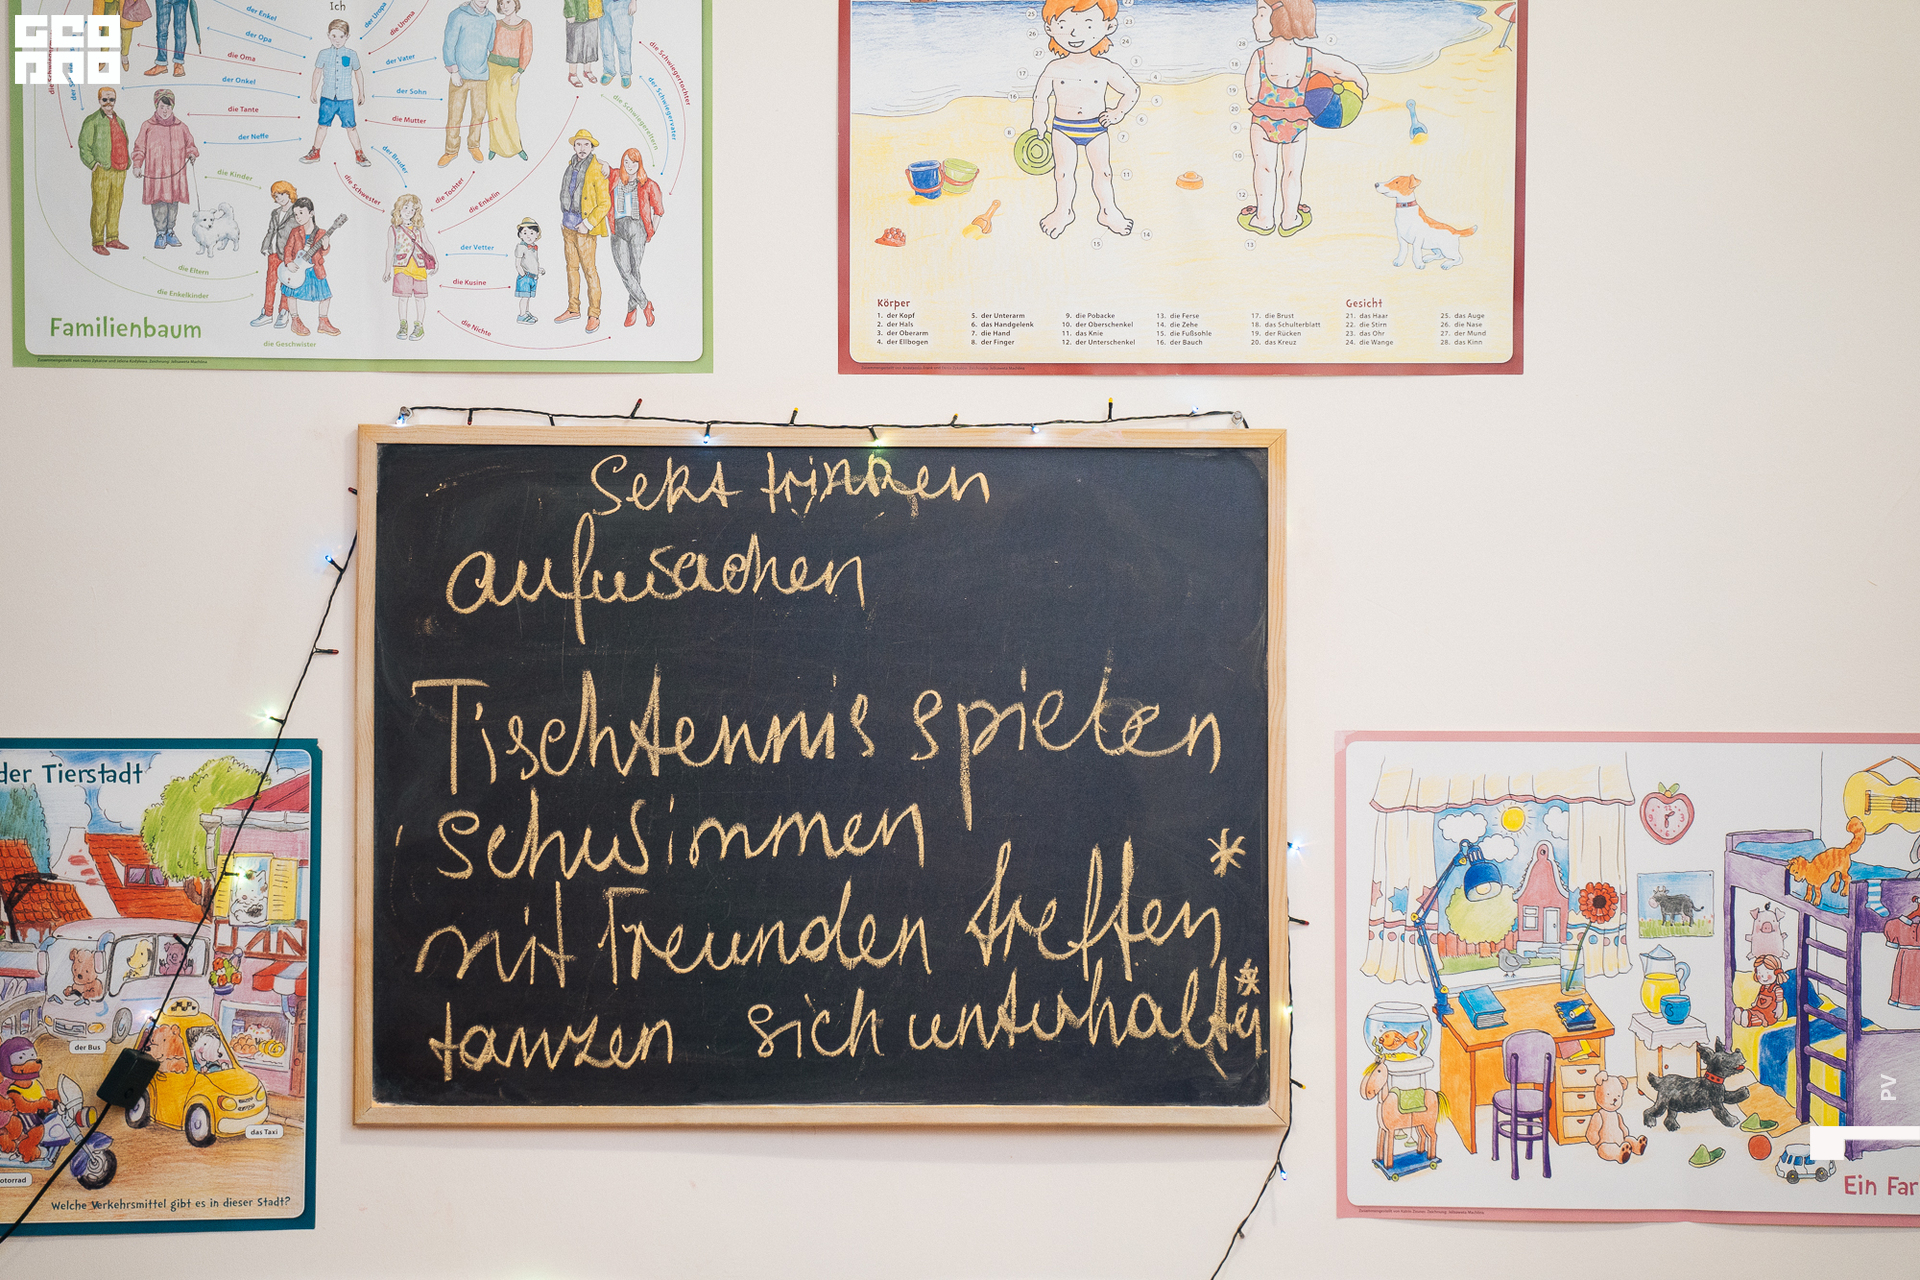 GEO
Ich
der Enkel
der Opa
die Oma
der Onkel
die Tante
der Neffe
der Uropa
die Uroma
der Vater
der Sohn
die Mutter
der Bruder
die Schwester
die Tochter
die Enkelin
die Schwiegertochter
der Schwiegervater
die Schwiegereltern
die Kinder
der Vetter
die Kusine
die Nichte
die Eltern
die Enkelkinder
die Geschwister
Familienbaum
Körper
1. der Kopf
2. der Hals
3. der Oberarm
4. der Ellbogen
5. der Unterarm
6. das Handgelenk
7. die Hand
8. der Finger
9. die Pobacke
10. der Oberschenkel
11. das Knie
12. der Unterschenkel
13. die Ferse
14. die Zehe
15. die Fußsohle
16. der Bauch
17. die Brust
18. das Schulterblatt
19. der Rücken
20. das Kreuz
Gesicht
21. das Haar
22. die Stirn
23. das Ohr
24. die Wange
25. das Auge
26. die Nase
27. der Mund
28. das Kinn
Sekt trinken
aufwachen
Tischtennis spielen
schwimmen
mit Freunden treffen *
tanzen sich unterhalten *
der Tierstadt
der Bus
das Taxi
otorrad
Welche Verkehrsmittel gibt es in dieser Stadt?
Ein Far
PV